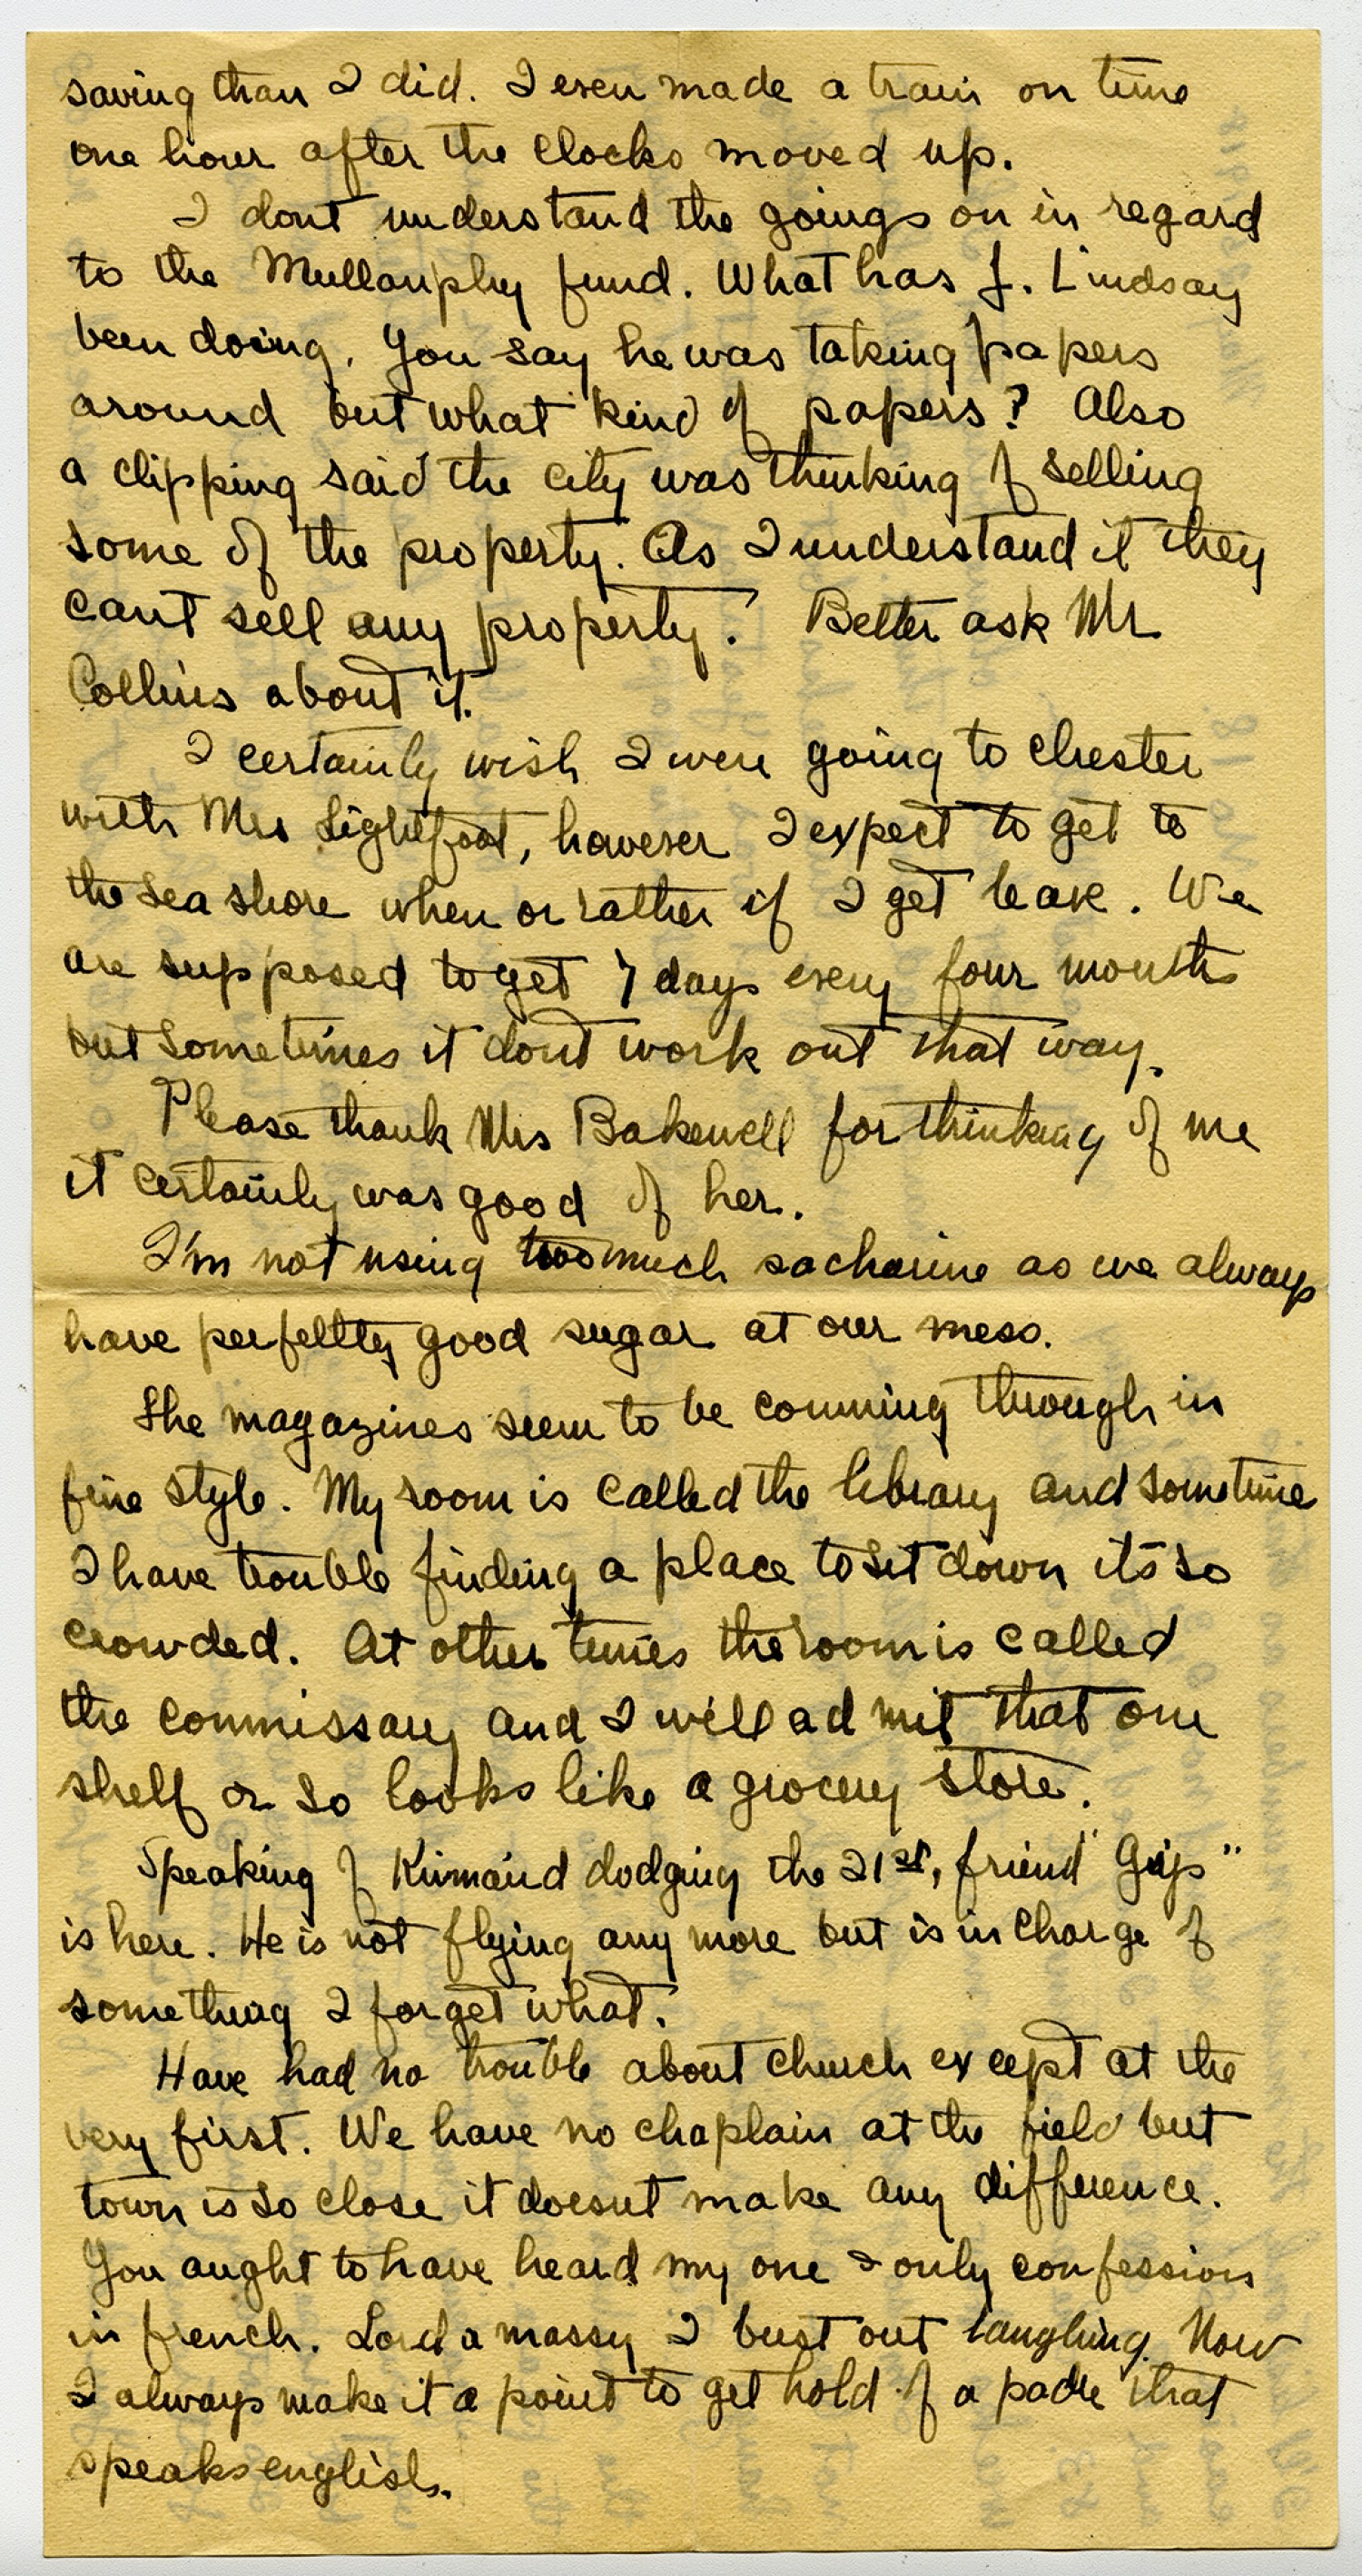 saving than I did. I even made a train on time
one hour after the clocks moved up.
I dont understand the goings on in regard
to the Mullanphy fund. What has J. Lindsay
been doing. You say he was taking papers
around but what kind of papers? Also
a clipping said the city was thinking of selling
some of the property. As I understand it they
cant sell any property. Better ask Mr
Collins about it.
I certainly wish I were going to Chester
with Mrs Lightfoot, however I expect to get to
the sea shore when or rather if I get leave. We
are supposed to get 7 days every four months
but sometimes it dont work out that way.
Please thank Mrs Bakewell for thinking of me
it certainly was good of her.
I'm not using too much sacharine as we always
have perfeltty good sugar at our mess.
The magazines seem to be comming through in
fine style. My room is called the library and sometime
I have trouble finding a place to sit down its so
crowded. At other times the room is called
the commissary and I will admit that one
shelf or so looks like a grocery store.
Speaking of Kinnaird dodging the 21st, friend "Grip"
is here. He is not flying any more but is in charge of
something I forget what.
Have had no trouble about church except at the
very first. We have no chaplain at the field but
town is so close it doesnt make any difference.
You aught to have heard my one & only confession
in french. Lord a massy I bust out laughing. Now
I always make it a point to get hold of a padre that
speaks english.